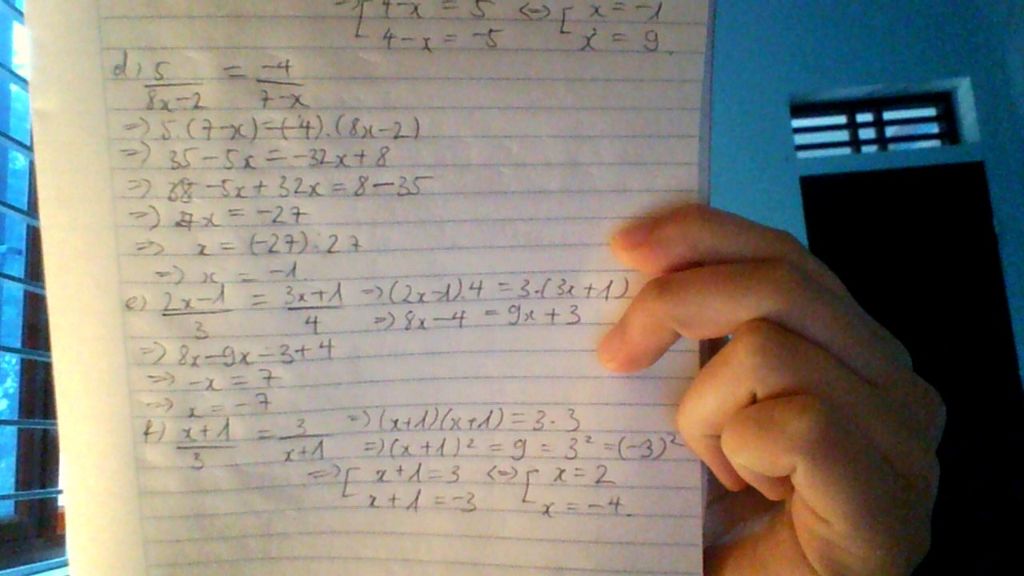 => [ 4-x = 5 <=> [ x = -1
4-x = -5 x = 9.
d) 5/(8x-2) = -4/(7-x)
=> 5.(7-x)=(-4).(8x-2)
=> 35-5x = -32x+8
=> -5x+32x = 8-35
=> 27x = -27
=> x = (-27):27
=> x = -1
e) (2x-1)/3 = (3x+1)/4 => (2x-1).4 = 3.(3x+1)
=> 8x-4 = 9x+3
=> 8x-9x=3+4
=> -x = 7
=> x = -7
f) (x+1)/3 = 3/(x+1) => (x+1)(x+1) = 3.3
=> (x+1)² = 9 = 3² = (-3)²
=> [ x+1 = 3 <=> [ x = 2
x+1 = -3 x = -4.